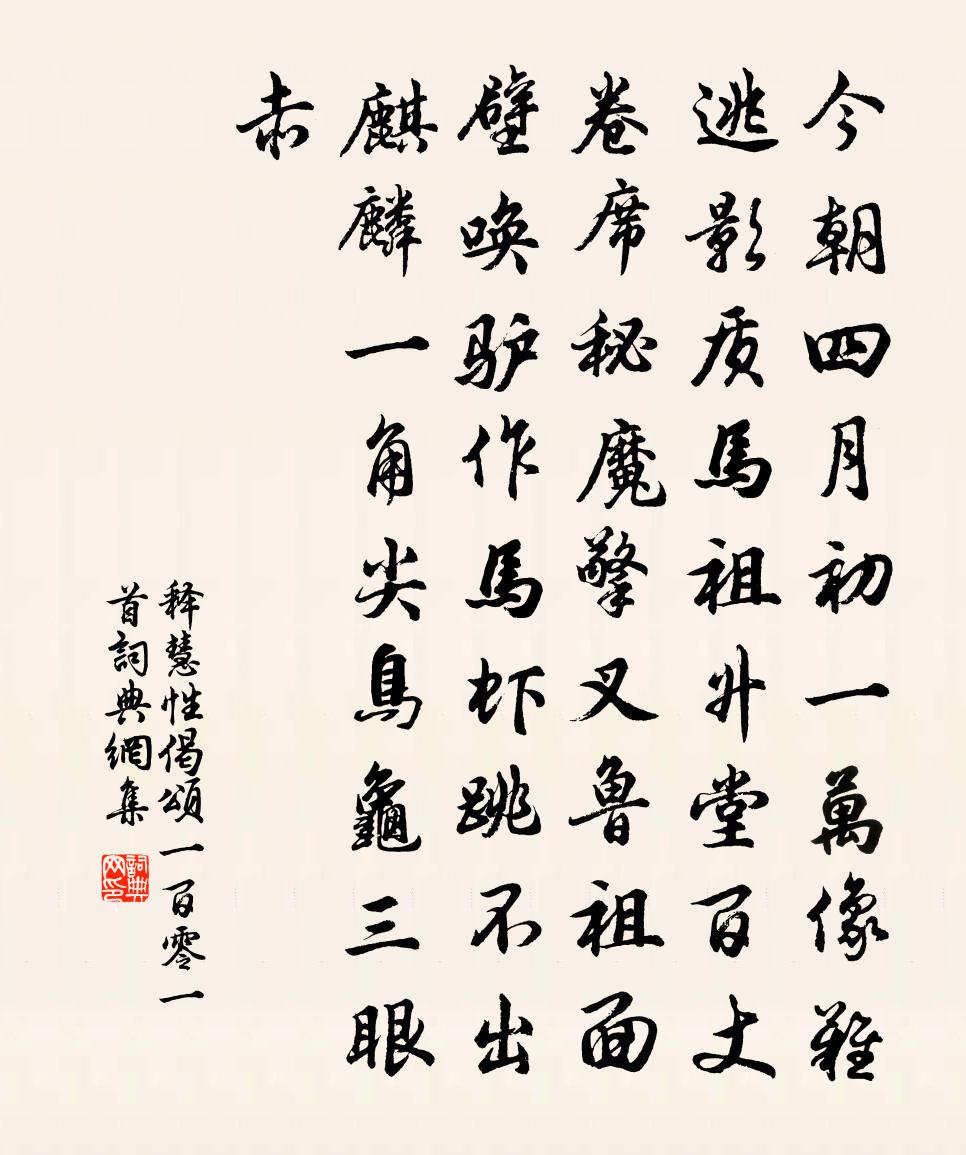 今朝四月初一萬像難
逃影质馬祖升堂百丈
卷席秘魔擎叉魯祖面
壁唤驴作馬虾跳不出
麒麟一角尖烏龜三眼
赤
释慧性偈頌一百零一
首詞典網集
詞典网印